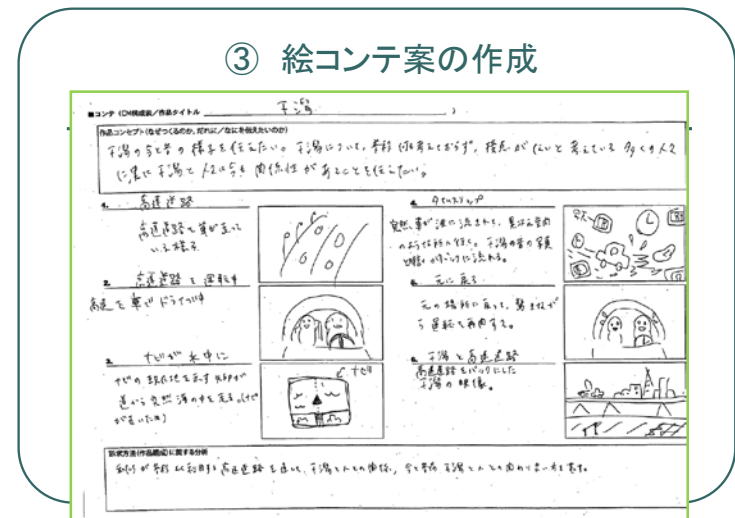 ③ 絵コンテ案の作成
■コンテ（CM構成案／作品タイトル 干潟 ）
作品コンセプト(なぜつくるのか、だれに／なにを伝えたいのか)
干潟の今と昔の様子を伝えたい。干潟について、普段何も考えておらず、接点がないと考えている多くの人々
に実は干潟と人は今も関係性があることを伝えたい。
1. 高速道路
高速道路を車が走って
いる様子
2. 高速道路を運転中
高速を車でドライブ中
3. ナビが水中に
ナビの現在地を示す矢印が
道から突然海の中を走る。(ナビ
が古いため)
ナビ
4. タイムスリップ
突然、車が波に流され、
干潟の昔の写真
5. 元に戻る
元の場所に戻って、驚きなが
ら運転を再開する。
6. 干潟と高速道路
高速道路をバックにした
干潟の映像。
訴求方法(作品構成)に関する分析
高速道路を通して、干潟と人との関係、今と昔の干潟と人との関わりを表す。